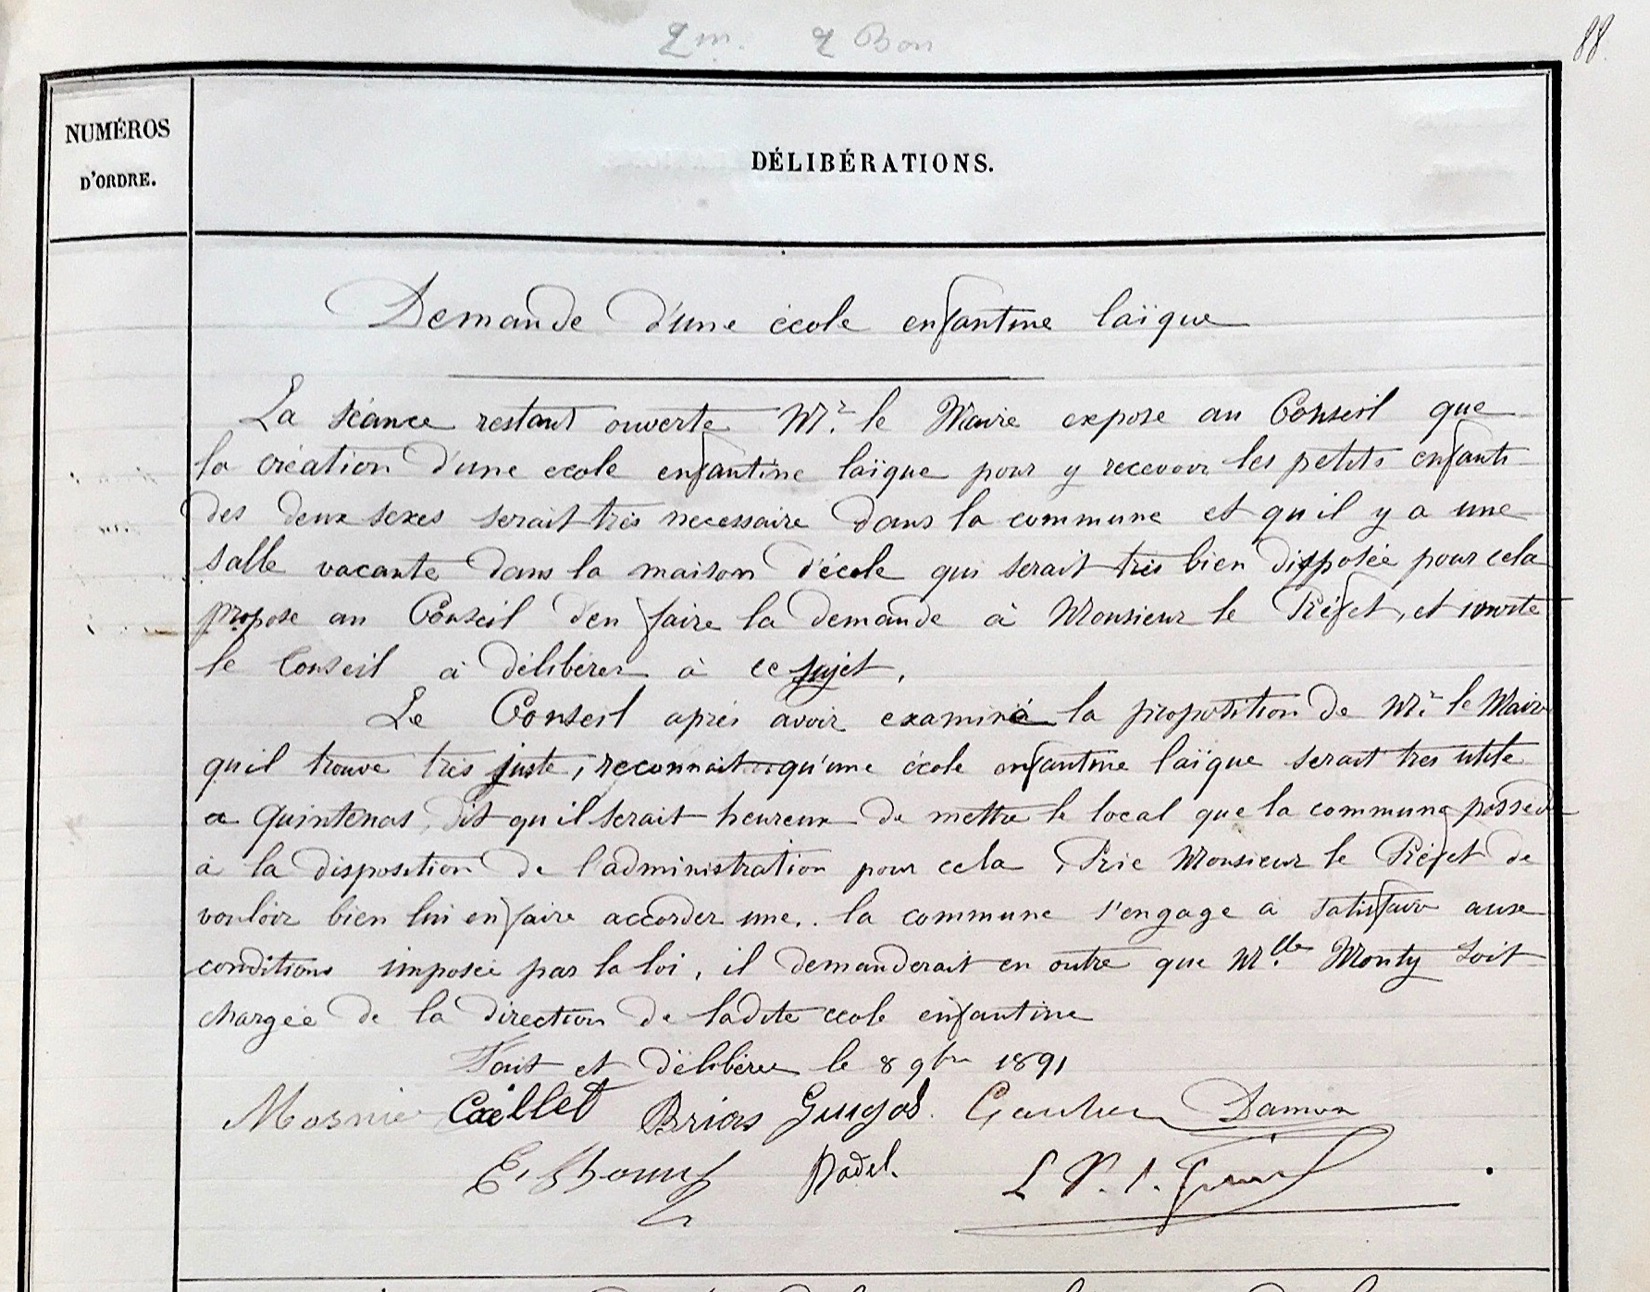 88
NUMÉROS
D'ORDRE.
DÉLIBÉRATIONS.
Demande d'une école enfantine laïque
La séance restant ouverte Mr. le Maire expose au Conseil que
la création d'une ecole enfantine laïque pour y recevoir les petits enfants
des deux sexes serait très necessaire dans la commune et qu'il y a une
salle vacante dans la maison d'école qui serait très bien disposée pour cela
propose au Conseil d'en faire la demande à Monsieur le Préfet, et invite
le Conseil à délibérer à ce sujet.
Le Conseil après avoir examiné la proposition de Mr. le Maire
qu'il trouve très juste, reconnait qu'une école enfantine laïque serait très utile
a Quintenas, dit qu'il serait heureux de mettre le local que la commune possède
à la disposition de l'administration pour cela, Prie Monsieur le Préfet de
vouloir bien lui en faire accorder une.. la commune s'engage à satisfaire aux
conditions imposée par la loi, il demanderait en outre que Mlle. Monty soit
chargée de la direction de ladite ecole enfantine
Fait et délibéré le 8 9bre 1891
Mosnier Caillet Brias Guigal. Gauthier Damon
Nadel.